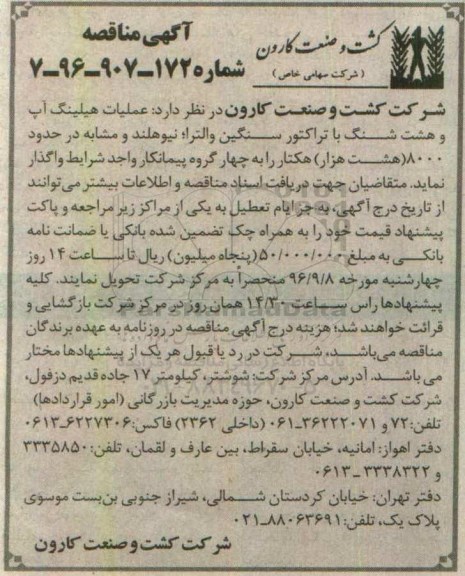 آگهی مناقصه
شماره ۱۷۲-۹۰۷-۹۶-۷
کشت و صنعت کارون
(شرکت سهامی خاص)
شرکت کشت و صنعت کارون در نظر دارد: عملیات هیلینگ آپ
و هشت شنگ با تراکتور سنگین والترا؛ نیوهلند و مشابه در حدود
۸۰۰۰(هشت هزار) هکتار را به چهار گروه پیمانکار واجد شرایط واگذار
نماید. متقاضیان جهت دریافت اسناد مناقصه و اطلاعات بیشتر می‌توانند
از تاریخ درج آگهی، به جز ایام تعطیل به یکی از مراکز زیر مراجعه و پاکت
پیشنهاد قیمت خود را به همراه چک تضمین شده بانکی یا ضمانت نامه
بانکی به مبلغ ۵۰/۰۰۰/۰۰۰(پنجاه میلیون) ریال تا ساعت ۱۴ روز
چهارشنبه مورخه ۹۶/۹/۸ منحصراً به مرکز شرکت تحویل نمایند. کلیه
پیشنهادها راس ساعت ۱۴/۳۰ همان روز در مرکز شرکت بازگشایی و
قرائت خواهند شد؛ هزینه درج آگهی مناقصه در روزنامه به عهده برندگان
مناقصه می‌باشد، شرکت در رد یا قبول هر یک از پیشنهادها مختار
می باشد. آدرس مرکز شرکت: شوشتر، کیلومتر ۱۷ جاده قدیم دزفول،
شرکت کشت و صنعت کارون، حوزه مدیریت بازرگانی (امور قراردادها)
تلفن: ۷۲ و ۳۶۲۲۲۰۷۱-۰۶۱ (داخلی ۲۳۶۲) فاکس: ۶۲۲۷۳۰۶-۰۶۱۳
دفتر اهواز: امانیه، خیابان سقراط، بین عارف و لقمان، تلفن: ۳۳۳۵۸۵۰
و ۳۳۳۸۳۲۲-۰۶۱۳
دفتر تهران: خیابان کردستان شمالی، شیراز جنوبی بن‌بست موسوی
پلاک یک، تلفن: ۸۸۰۶۳۶۹۱-۰۲۱
شرکت کشت و صنعت کارون